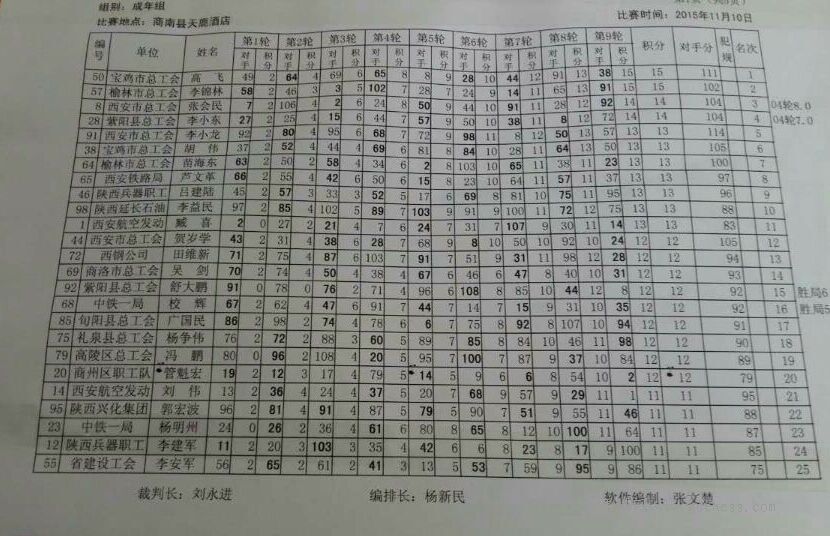 组别：成年组
比赛地点：商南县天鹿酒店
比赛时间：2015年11月10日
编号 单位 姓名 第1轮 第2轮 第3轮 第4轮 第5轮 第6轮 第7轮 第8轮 第9轮 积分 对手分 犯规 名次
对手 积分 对手 积分 对手 积分 对手 积分 对手 积分 对手 积分 对手 积分 对手 积分 对手 积分
50 宝鸡市总工会 高飞 49 2 64 4 69 6 65 8 8 9 28 10 44 12 91 13 38 15 15 111 1
57 榆林市总工会 李锦林 58 2 46 3 3 5 102 7 28 7 24 9 14 11 65 13 91 15 15 102 2
8 西安市总工会 张会民 7 2 106 4 2 6 24 8 50 9 44 10 91 11 28 12 92 14 14 104 3 04轮8.0
28 紫阳县总工会 李小东 27 2 25 4 15 6 44 7 57 9 50 10 38 11 8 12 72 14 14 104 4 04轮7.0
91 西安市总工会 李小龙 92 2 80 4 95 6 68 7 72 9 98 11 8 12 50 13 57 13 13 114 5
38 宝鸡市总工会 胡伟 37 2 52 4 44 4 69 6 81 8 84 10 28 11 64 13 50 13 13 105 6
64 榆林市总工会 苗海东 63 2 50 2 58 4 34 6 2 8 103 10 65 11 38 11 23 13 13 100 7
65 西安铁路局 芦文革 66 2 55 4 42 6 50 6 15 8 23 10 64 11 57 11 37 13 13 97 8
46 陕西兵器职工 吕建陆 45 2 57 3 33 3 52 5 17 6 69 8 81 10 75 11 95 13 13 96 9
98 陕西延长石油 李益民 97 2 85 4 102 5 89 7 103 9 91 9 100 11 72 12 75 13 13 88 10
1 西安航空发动 臧喜 2 0 27 2 21 4 7 6 24 7 31 7 107 9 30 11 14 13 13 83 11
44 西安市总工会 贺岁学 43 2 31 4 38 6 28 7 68 9 8 10 50 10 92 10 24 12 12 105 12
72 西钢公司 田维新 71 2 75 4 87 6 103 7 91 7 51 9 31 11 98 12 28 12 12 94 13
69 商洛市总工会 吴剑 70 2 74 4 50 4 38 4 67 6 46 8 47 8 40 10 31 12 12 93 14
92 紫阳县总工会 舒大鹏 91 0 78 0 76 2 71 4 96 6 108 8 85 10 44 12 8 12 12 92 15 胜局6
68 中铁一局 校辉 67 2 62 4 47 6 91 7 44 7 14 7 15 9 31 10 35 12 12 92 16 胜局5
85 旬阳县总工会 广国民 86 2 98 2 74 4 78 6 6 7 75 8 92 8 107 10 94 12 12 91 17
75 礼泉县总工会 杨争伟 76 2 72 2 88 3 60 5 89 7 85 8 84 10 46 11 98 12 12 90 18
79 高陵区总工会 冯鹏 80 0 96 2 108 4 20 5 95 7 100 7 87 9 37 10 84 12 12 89 19
20 商州区职工队 管魁宏 19 2 12 3 17 4 79 5 14 5 9 6 6 8 54 10 2 12 12 79 20
14 西安航空发动 刘伟 13 2 36 4 24 4 37 5 20 7 68 9 57 9 29 11 1 11 11 95 21
95 陕西兴化集团 郭宏波 96 2 81 4 91 4 87 5 79 5 90 7 51 9 55 11 46 11 11 88 22
23 中铁一局 杨明州 24 0 26 2 36 4 61 6 80 8 65 8 12 10 100 11 64 11 11 87 23
12 陕西兵器职工 李建军 11 2 20 3 103 3 35 4 42 6 6 8 23 8 17 9 100 11 11 85 24
55 省建设工会 李安军 56 2 65 2 61 2 41 3 13 5 53 7 59 9 95 9 86 11 11 75 25
裁判长：刘永进 编排长：杨新民 软件编制：张文楚